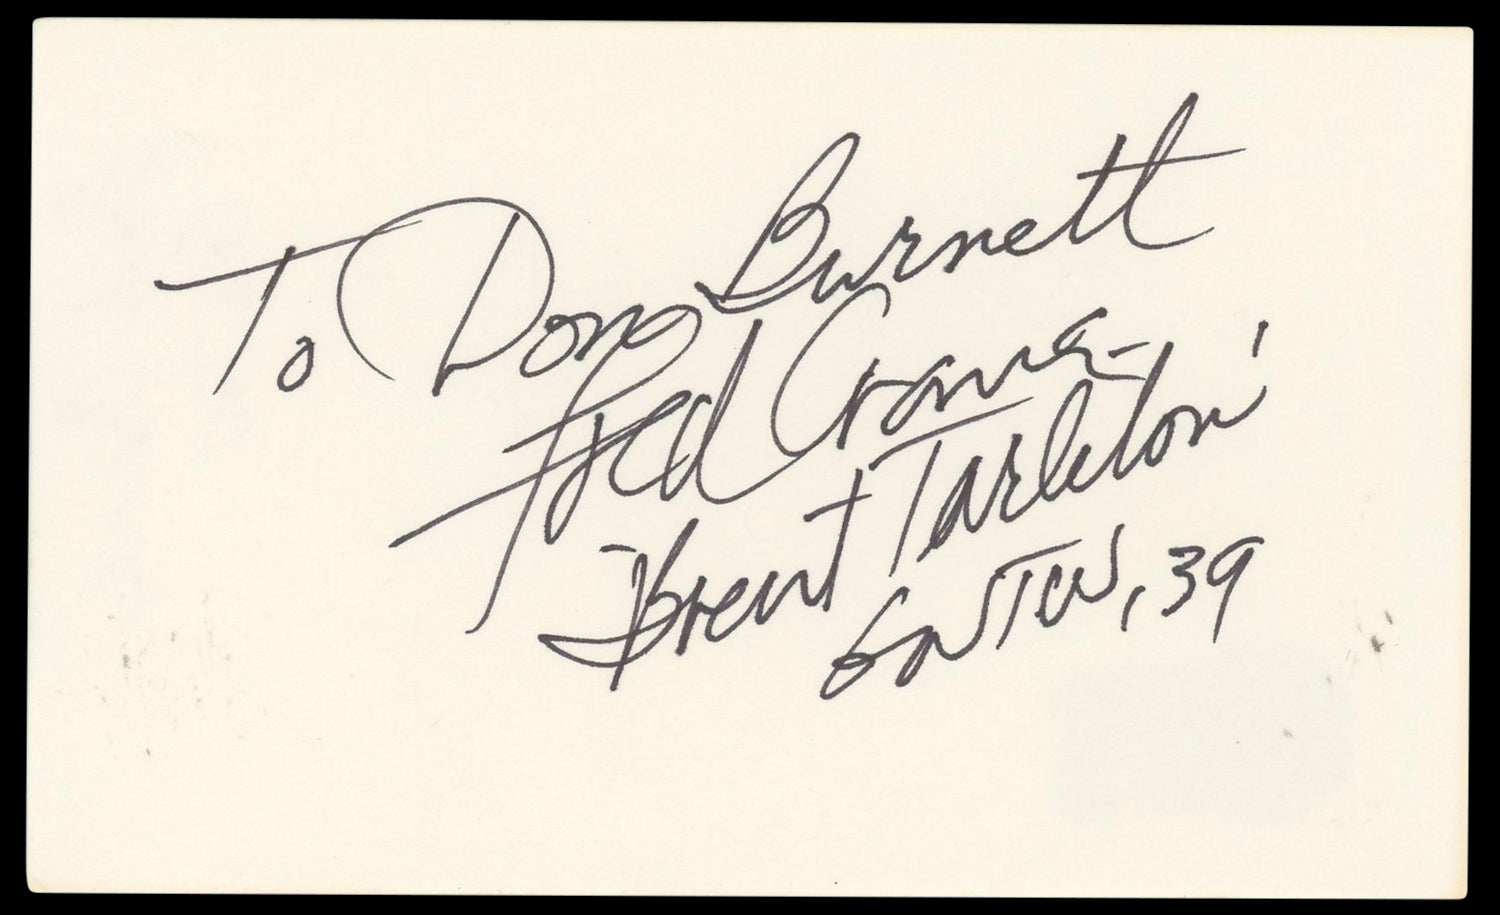 To Don Burnett
Fred Crane-
"Brent Tarleton"
GWTW, 39